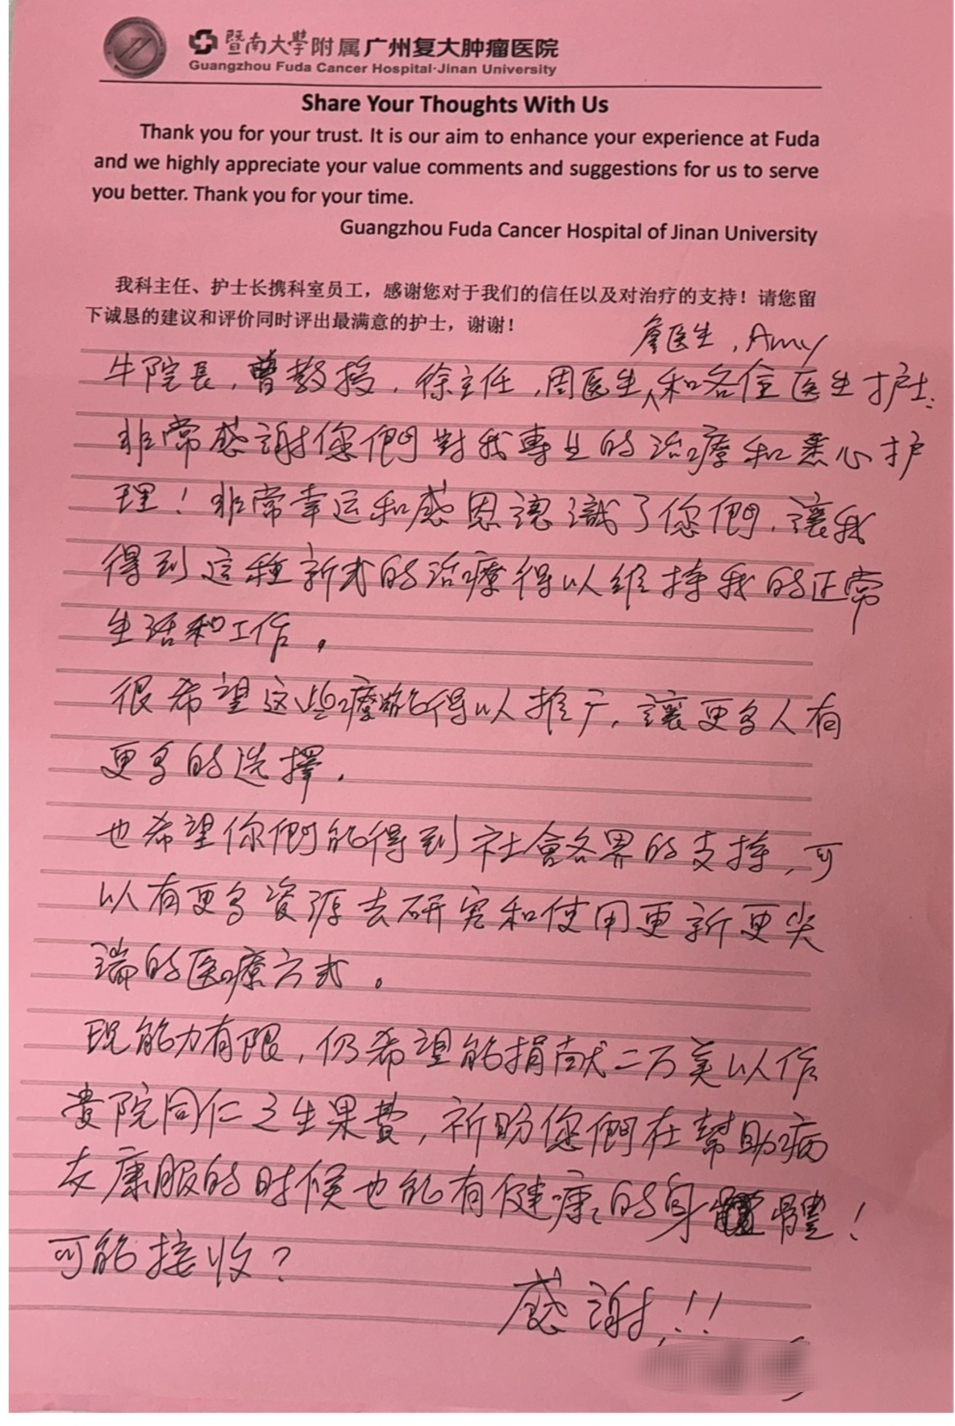 暨南大學附属广州复大肿瘤医院
Guangzhou Fuda Cancer Hospital·Jinan University
Share Your Thoughts With Us
Thank you for your trust. It is our aim to enhance your experience at Fuda
and we highly appreciate your value comments and suggestions for us to serve
you better. Thank you for your time.
Guangzhou Fuda Cancer Hospital of Jinan University
我科主任、护士长携科室员工，感谢您对于我们的信任以及对治疗的支持！请您留
下诚恳的建议和评价同时评出最满意的护士，谢谢！
詹医生，Amy
牛院長，曾教授，徐主任，周医生，和各位医生护士：
非常感謝您們對我專业的治療和悉心护
理！非常幸运和感恩認識了您們，讓我
得到这种新式的治療得以維持我的正常
生活和工作。
很希望这些療能得以推广，讓更多人有
更多的选擇．
也希望你們能得到社會各界的支持，可
以有更多资源去研究和使用更新更尖
端的医療方式。
現能力有限，仍希望能捐献二万美以作
贵院同仁之生果費，祈盼您們在幫助病
友康服的时候也能有健康的身體！
可能接收？
感谢！！